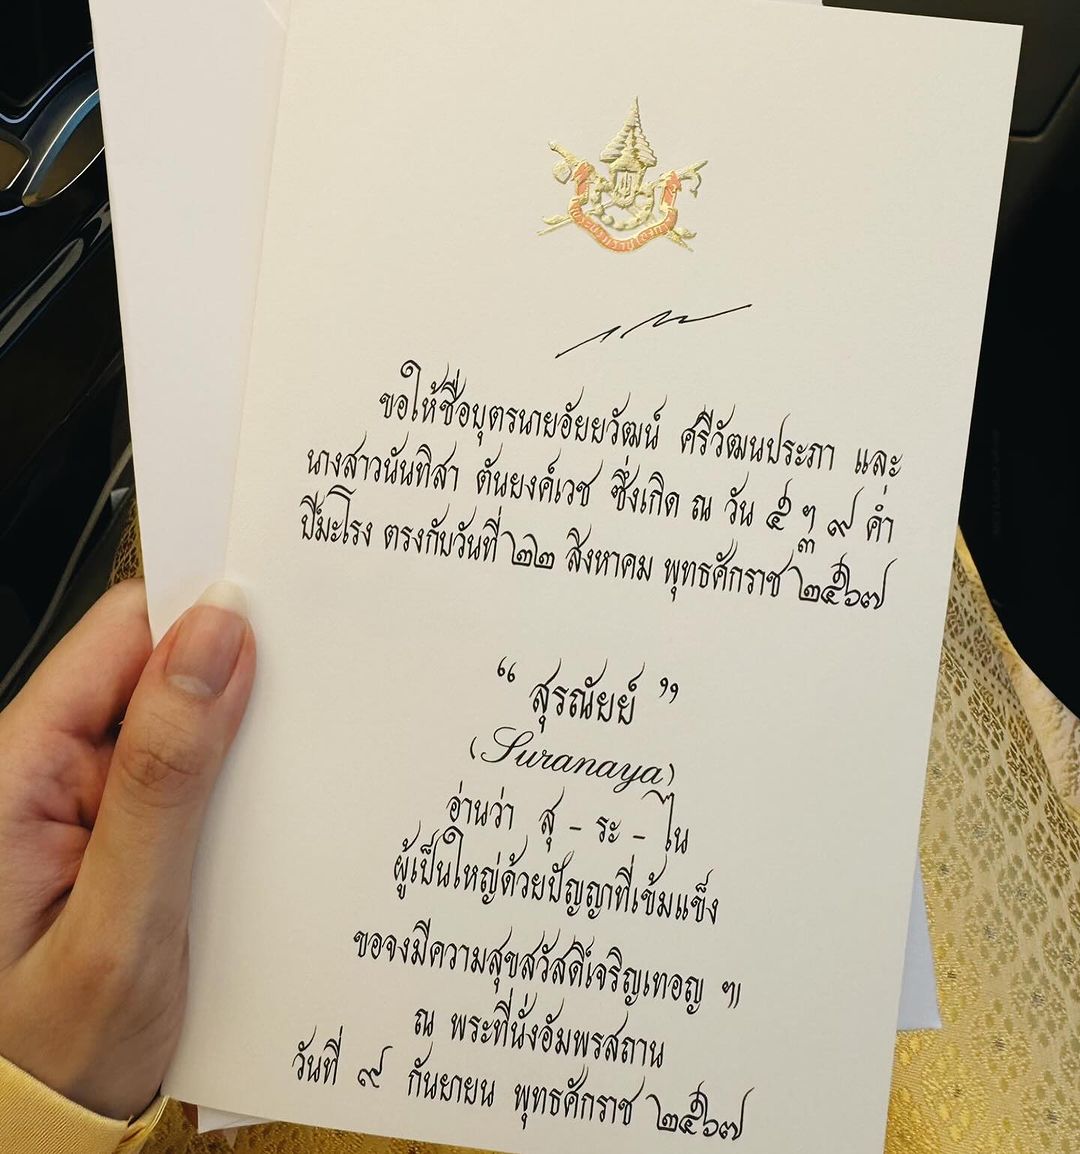 ขอให้ชื่อบุตรนายอัยยวัฒน์ ศรีวัฒนประภา และ
นางสาวนันทิสา ตันยงค์เวช ซึ่งเกิด ณ วัน ๕ ฯ ๓ ๙ ค่ำ
ปีมะโรง ตรงกับวันที่ ๒๒ สิงหาคม พุทธศักราช ๒๕๖๗
“ สุรณัยย์ ”
(Suranaya)
อ่านว่า สุ - ระ - ไน
ผู้เป็นใหญ่ด้วยปัญญาที่เข้มแข็ง
ขอจงมีความสุขสวัสดิ์เจริญเทอญ ๚
ณ พระที่นั่งอัมพรสถาน
วันที่ ๙ กันยายน พุทธศักราช ๒๕๖๗